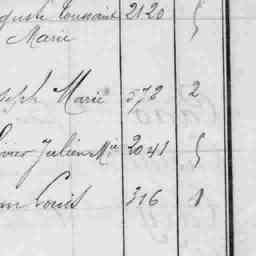 guste Toussaint 2120 5
Marie
seph Marie 572 2
ivier Julien Mie 2041 5
an Louis 316 1